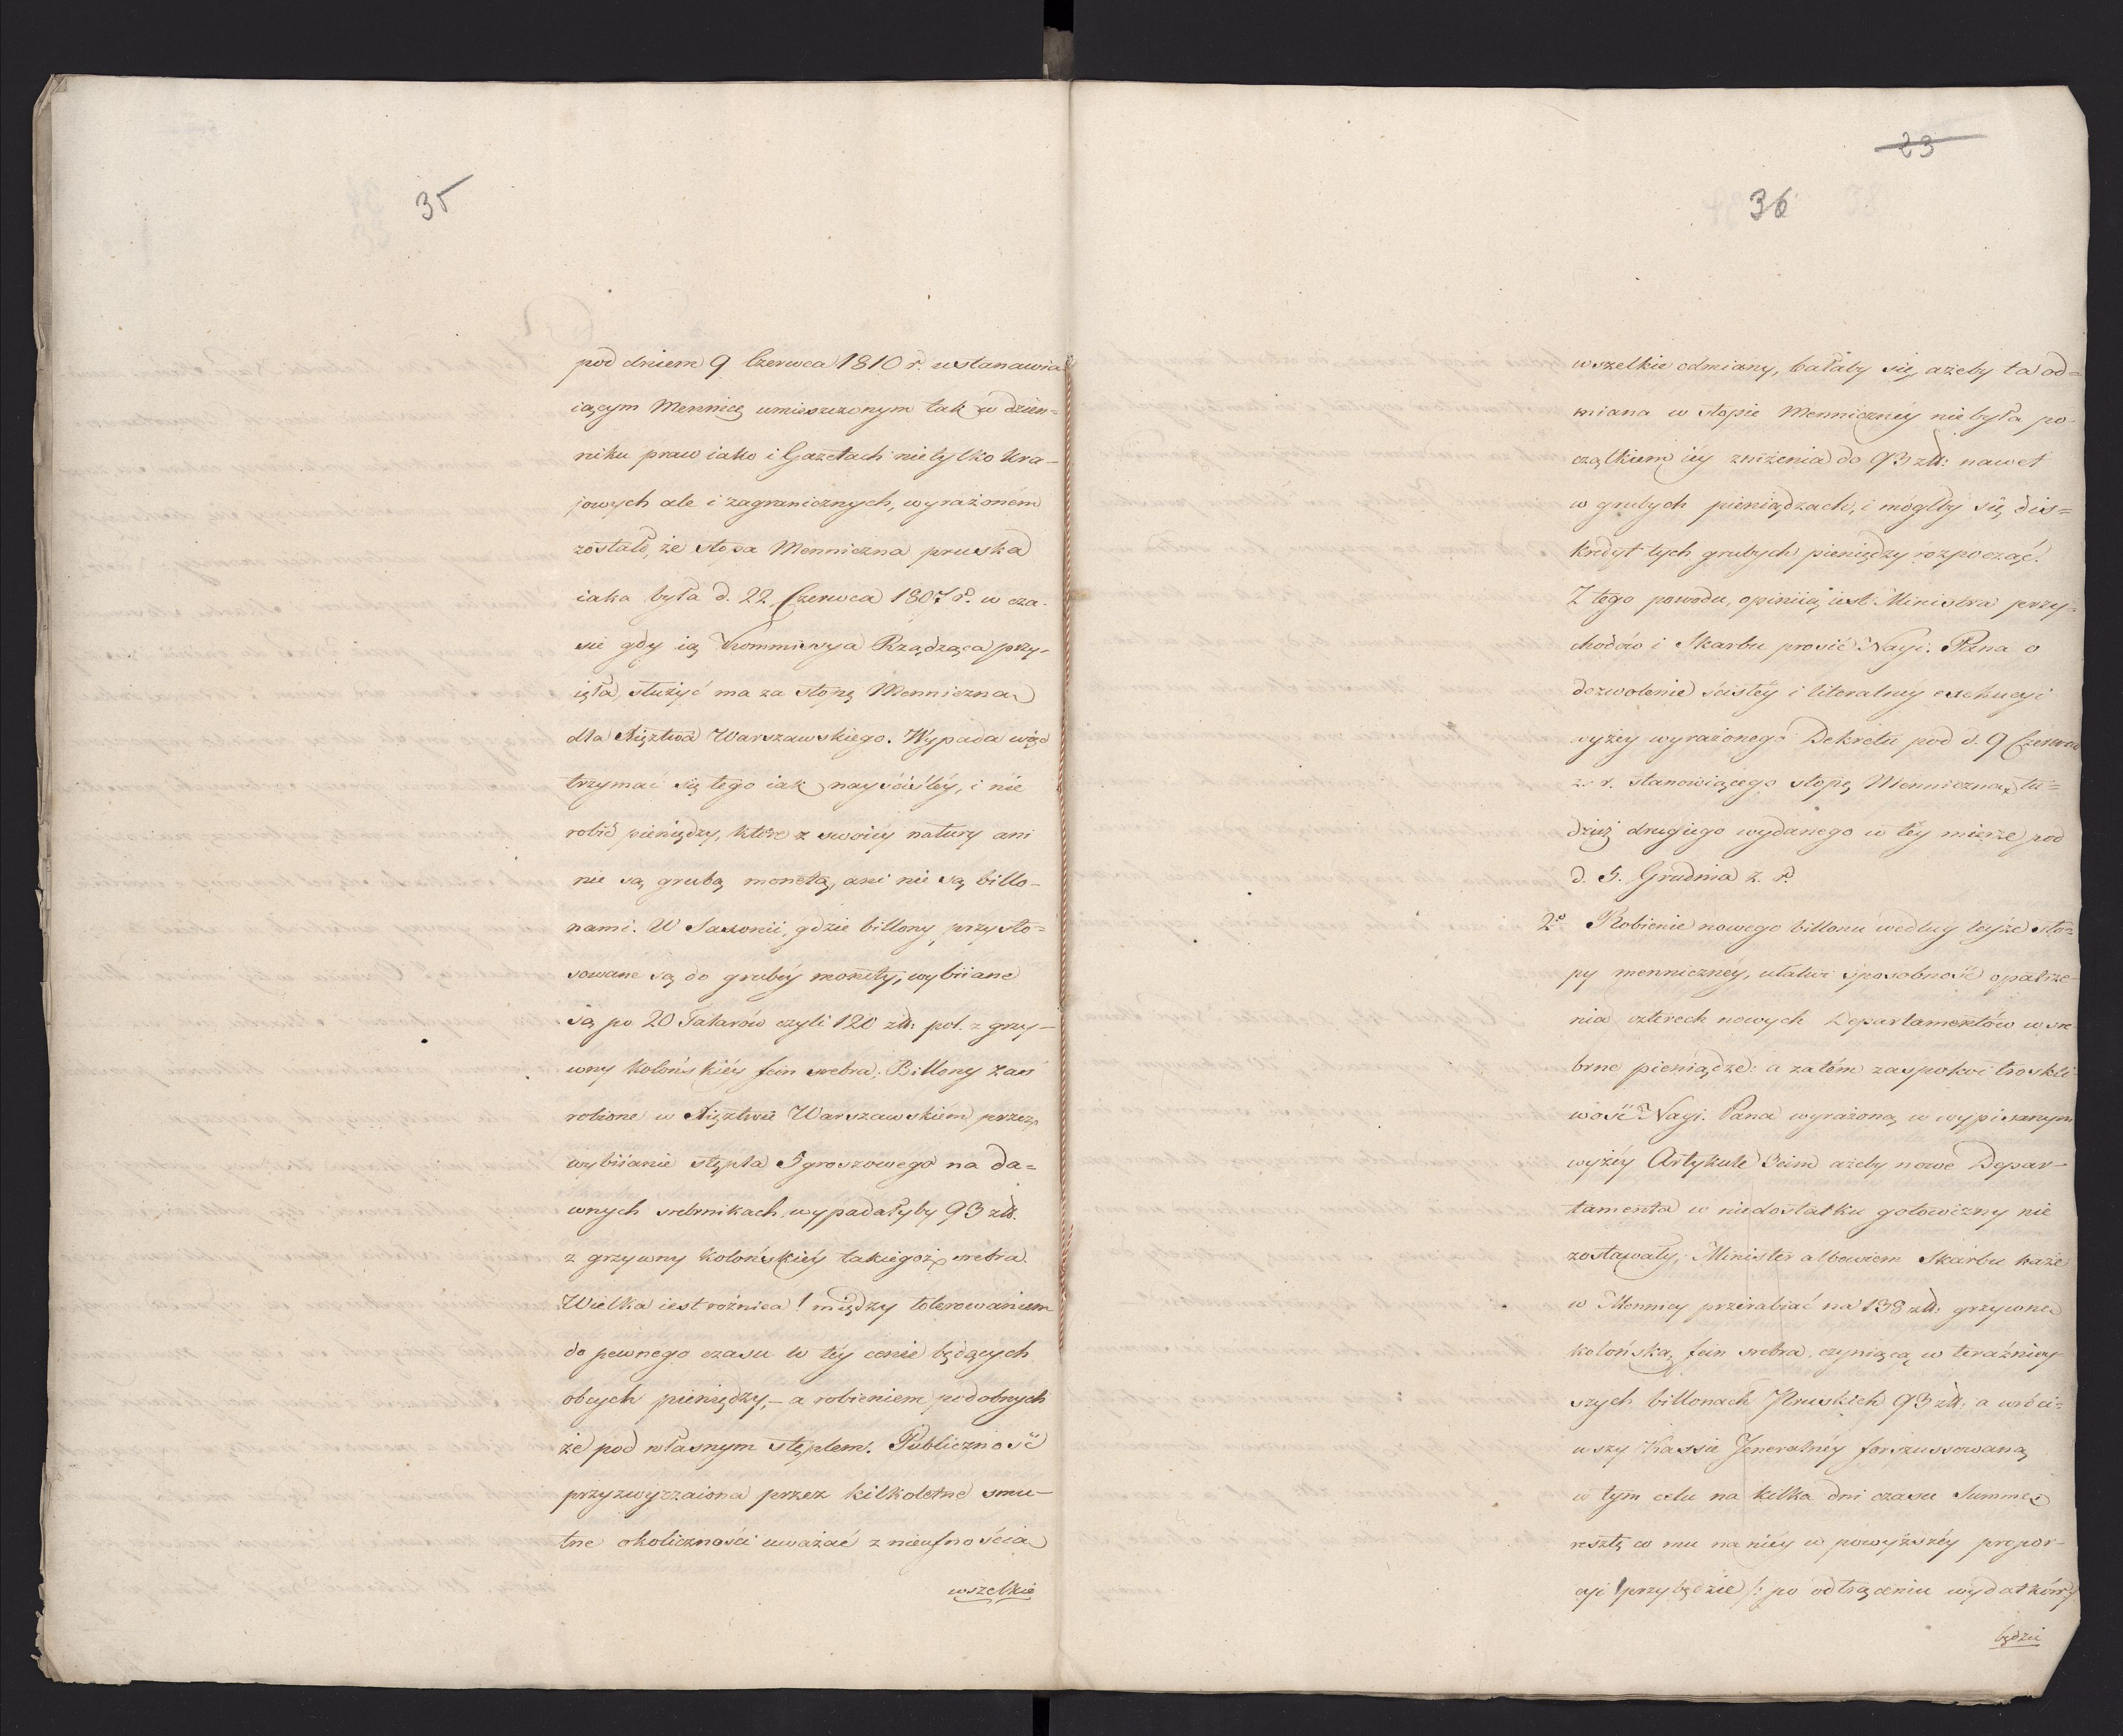 35
pod dniem 9 Czerwca 1810 r. ustanawia
iącym Mennicę umieszczonym tak w dzien=
niku praw iako i Gazetach nietylko kra-
jowych ale i zagranicznych, wyrażoném
zostało, że stopa Menniczna pruska
iaka była d. 22 Czerwca 1807 r. w cza-
sie gdy ią Kommissya Rządząca przy-
ięła, służyć ma za stopę Menniczną
dla Xięztwa Warszawskiego. Wypada więc
trzymać się tego iak nayściśléy, i nie
robić pieniędzy, które z swoiéy natury ani
nie są grubą monetą, ani nie są billo-
nami. W Saxonii, gdzie billony przysto=
sowane są do grubéy monety, wybiiane
są po 20 Talarów czyli 120 złł: pol. z grzy-
wny Kolońskiéy fein srebra; Billony zaś
robione w Xięztwie Warszawskiém przez
wybiianie stępla 5groszowego na da=
wnych srebrnikach, wypadałyby 93 złł.
z grzywny Kolońskiéy takiegoż srebra.
Wielka iest rożnica! między tolerowaniem
do pewnego czasu w téy cenie będących
obcych pieniędzy,- a robieniem podobnych
że pod własnym stęplem. Publiczność
przyzwyczaiona przez kilkoletne smu-
tne okoliczności uważać z nieufnością
wszelkie
23
36
wszelkie odmiany, bałaby się, ażeby ta od=
miana w stopie Mennicznéy nie była po-
czątkiem iéy zniżenia do 93 złł: nawet
w grubych pieniądzach, i mógłby się dis=
kredyt tych grubych pieniędzy rozpocząć.
Z tego powodu, opiniią iest Ministra przy=
chodów i Skarbu prosić Nayi. Pana o
dozwolenie ścisłéy i literalnéy exekucyi
wyżéy wyrażonego Dekretu pod d. 9 Czerwca
z. r. stanowiącego stopę Menniczną, tu=
dzież drugiego wydanego w téy mierze pod
d. 5. Grudnia z. r.
2o Robienie nowego billonu według teyże sto=
py mennicznéy, ułatwi sposobność opatrze-
nia czterech nowych Departamentów w sre-
brne pieniądze: a zatém zaspokoi troskli-
wość Nayi. Pana wyrażoną w wypisanym
wyżéy Artykule 3cim ażeby nowe Depar-
tamenta w niedostatku gotowizny nie
zostawały; Minister albowiem Skarbu każe
w Mennicy przerabiać na 138 złł: grzywnę
kolońską fein srebra, czyniącą w teraźniey-
szych billonach Pruskich 93 złł: a wróci=
wszy Kassie Jeneralnéy forszussowaną
w tym celu na kilka dni czasu Summę,
resztę co mu na niéy w powyższéy propor-
cyi przybędzie /: po odtrąceniu wydatków :/
będzie